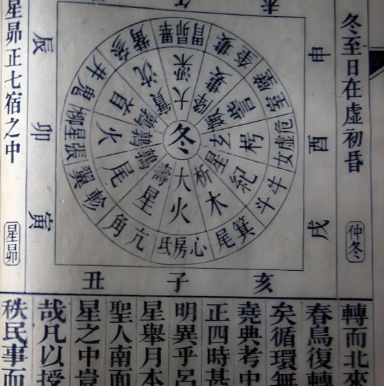 冬至日在虛初昏
仲冬
申
酉
戌
亥
子
丑
寅
卯
辰
冬
大火
析木
星紀
玄枵
大梁
實沈
鶉首
鶉火
鶉尾
壽星
角亢
氐房心
尾箕
斗牛
女虛危
室壁
奎婁
胃昴畢
觜參
井鬼
柳星張
翼軫
星昴正七宿之中
星昴
轉而北來
春鳥復轉
矣循環無
堯典考中
正四時甚
明異乎呂
星舉月本
聖人南面
星之中豈
哉凡以授
秩民事而